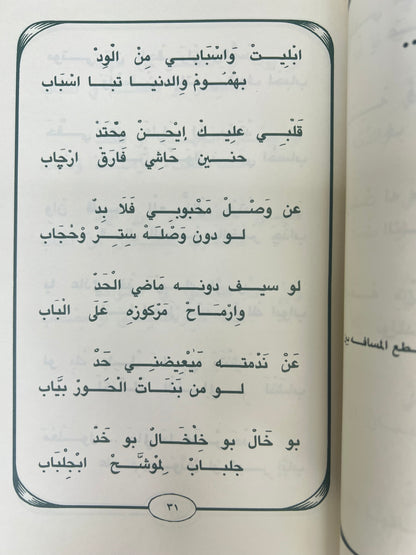 ابْلِيتْ وَاسْبَابي مِنْ الْوِدْ
بِهْمُومْ والدنيـا تبـا اسْبَاب
قَلْبِي عليكْ إيْحِنْ مِحْتَدْ
حنـين حَاشِي فَارَقْ ارْچَاب
عن وَصْلْ مَحْبوبي فَلَا بِدْ
لـو دون وَصْلَهْ سِترْ وْحْجَاب
لو سيف دونـه مَاضي الْحَدْ
وارْمـاحْ مَرْكوزِهْ عَلَى الْبَاب
عَنْ نَدْمتـه مَيْعِيضنـي حَدْ
لـو من بَنَاتْ الْحَورْ بيَّاب
بو خَالْ بو خِلْخَالْ بو خَدْ
جلبـاب لِموْشَّحْ ابْجِلْبَاب
٣١
طع المسافه